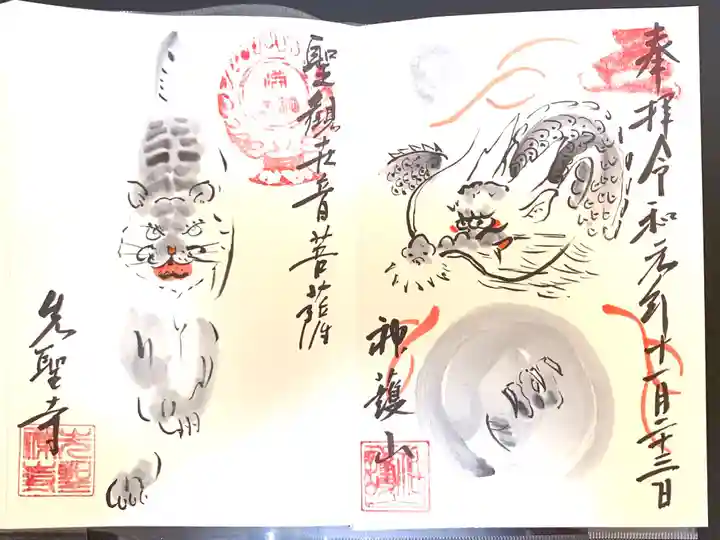 奉拝令和元年十一月二十三日
神護山
聖観世音菩薩
先聖寺